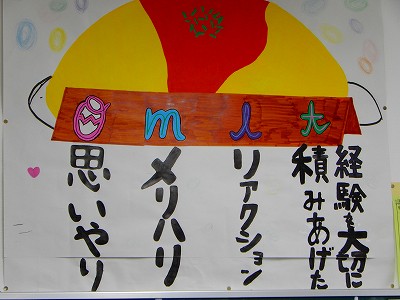 omlt
思いやり
メリハリ
リアクション
経験を大切に
積みあげた